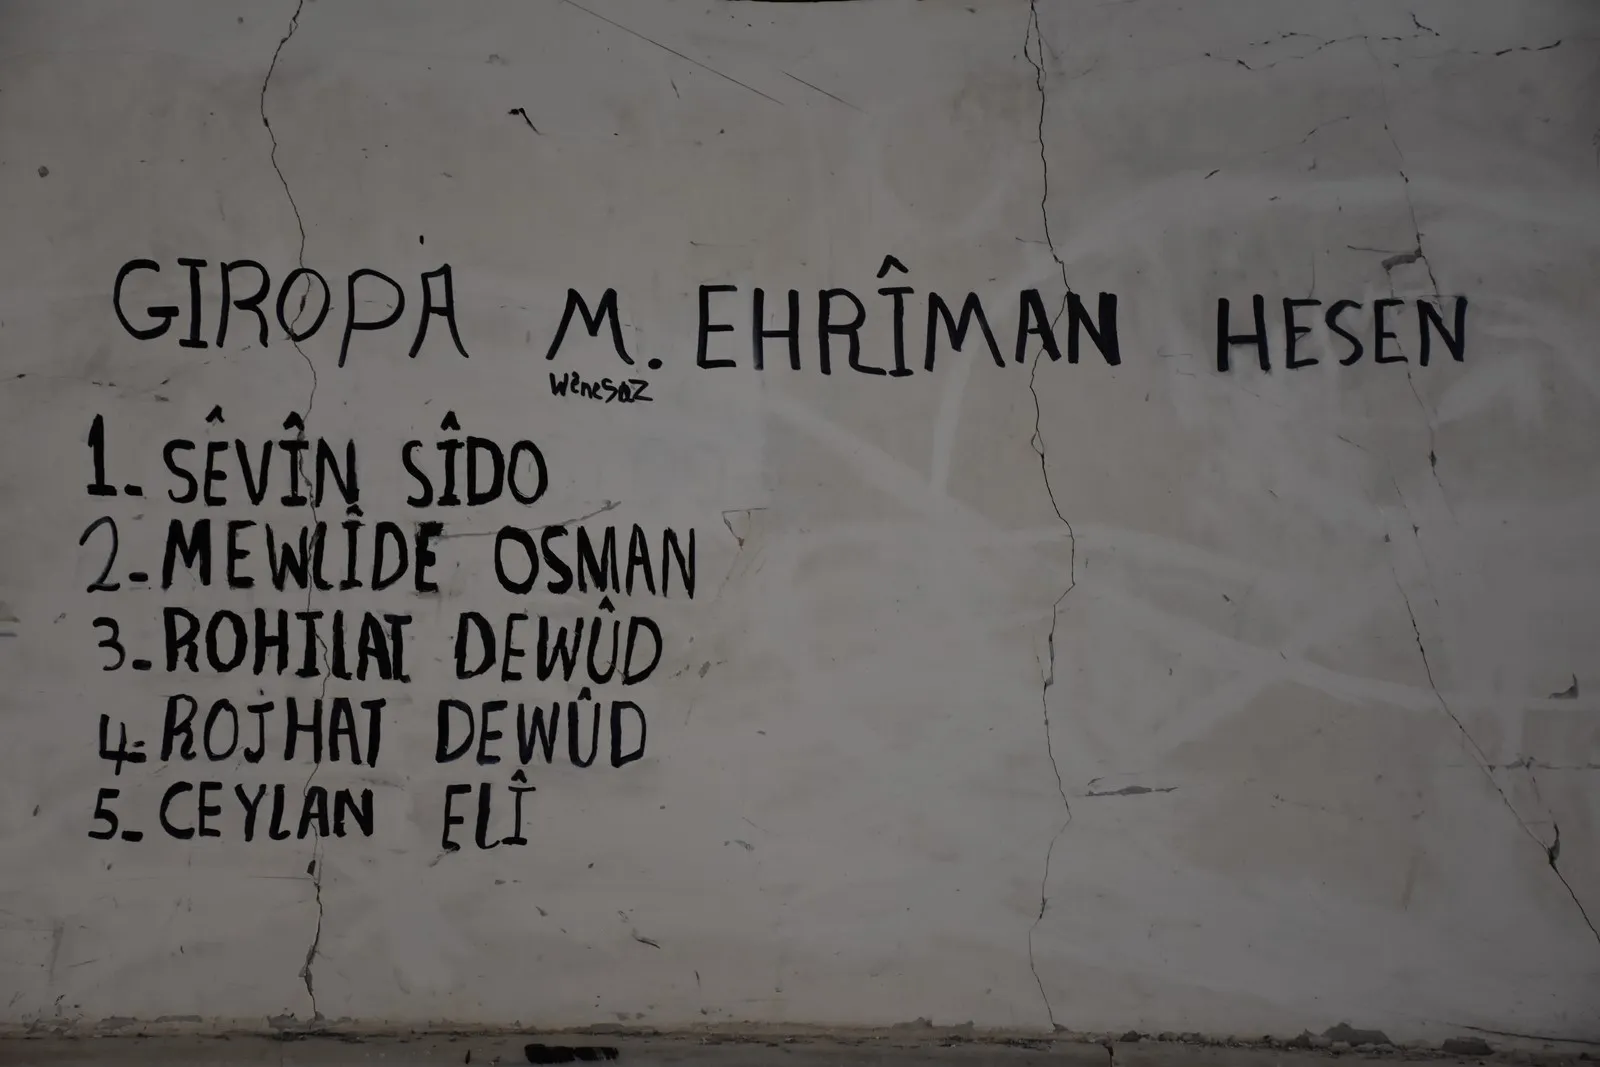 GIROPA M. EHRÎMAN HESEN
WênesaZ
1. SÊVÎN SÎDO
2. MEWLÎDE OSMAN
3. ROHILAT DEWÛD
4. ROJHAT DEWÛD
5. CEYLAN ELÎ